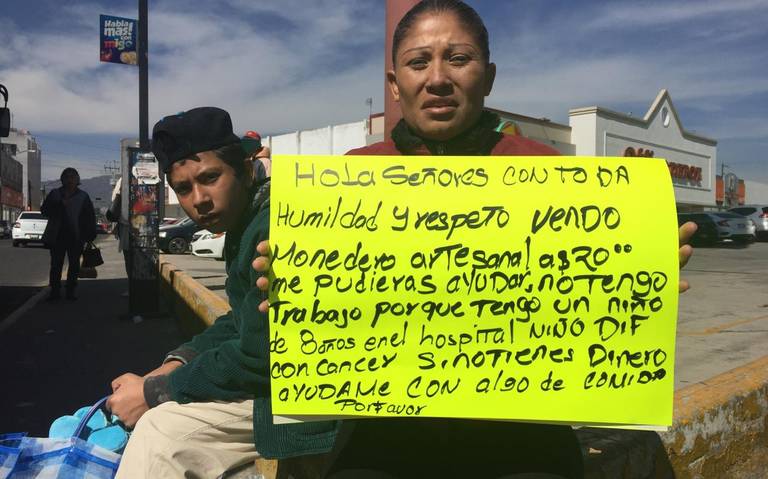 Habla
mas!
con
migo
HoLa Señores CON TODA
Humildad y respeto vendo
Monedero artesanal a $20°°
me pudieras ayudar, no tengo
Trabajo porque tengo un niño
de 8 años en el hospital NIÑO DIF
con cancer Si no tienes Dinero
AYUDAME CON algo de comida
Por favor